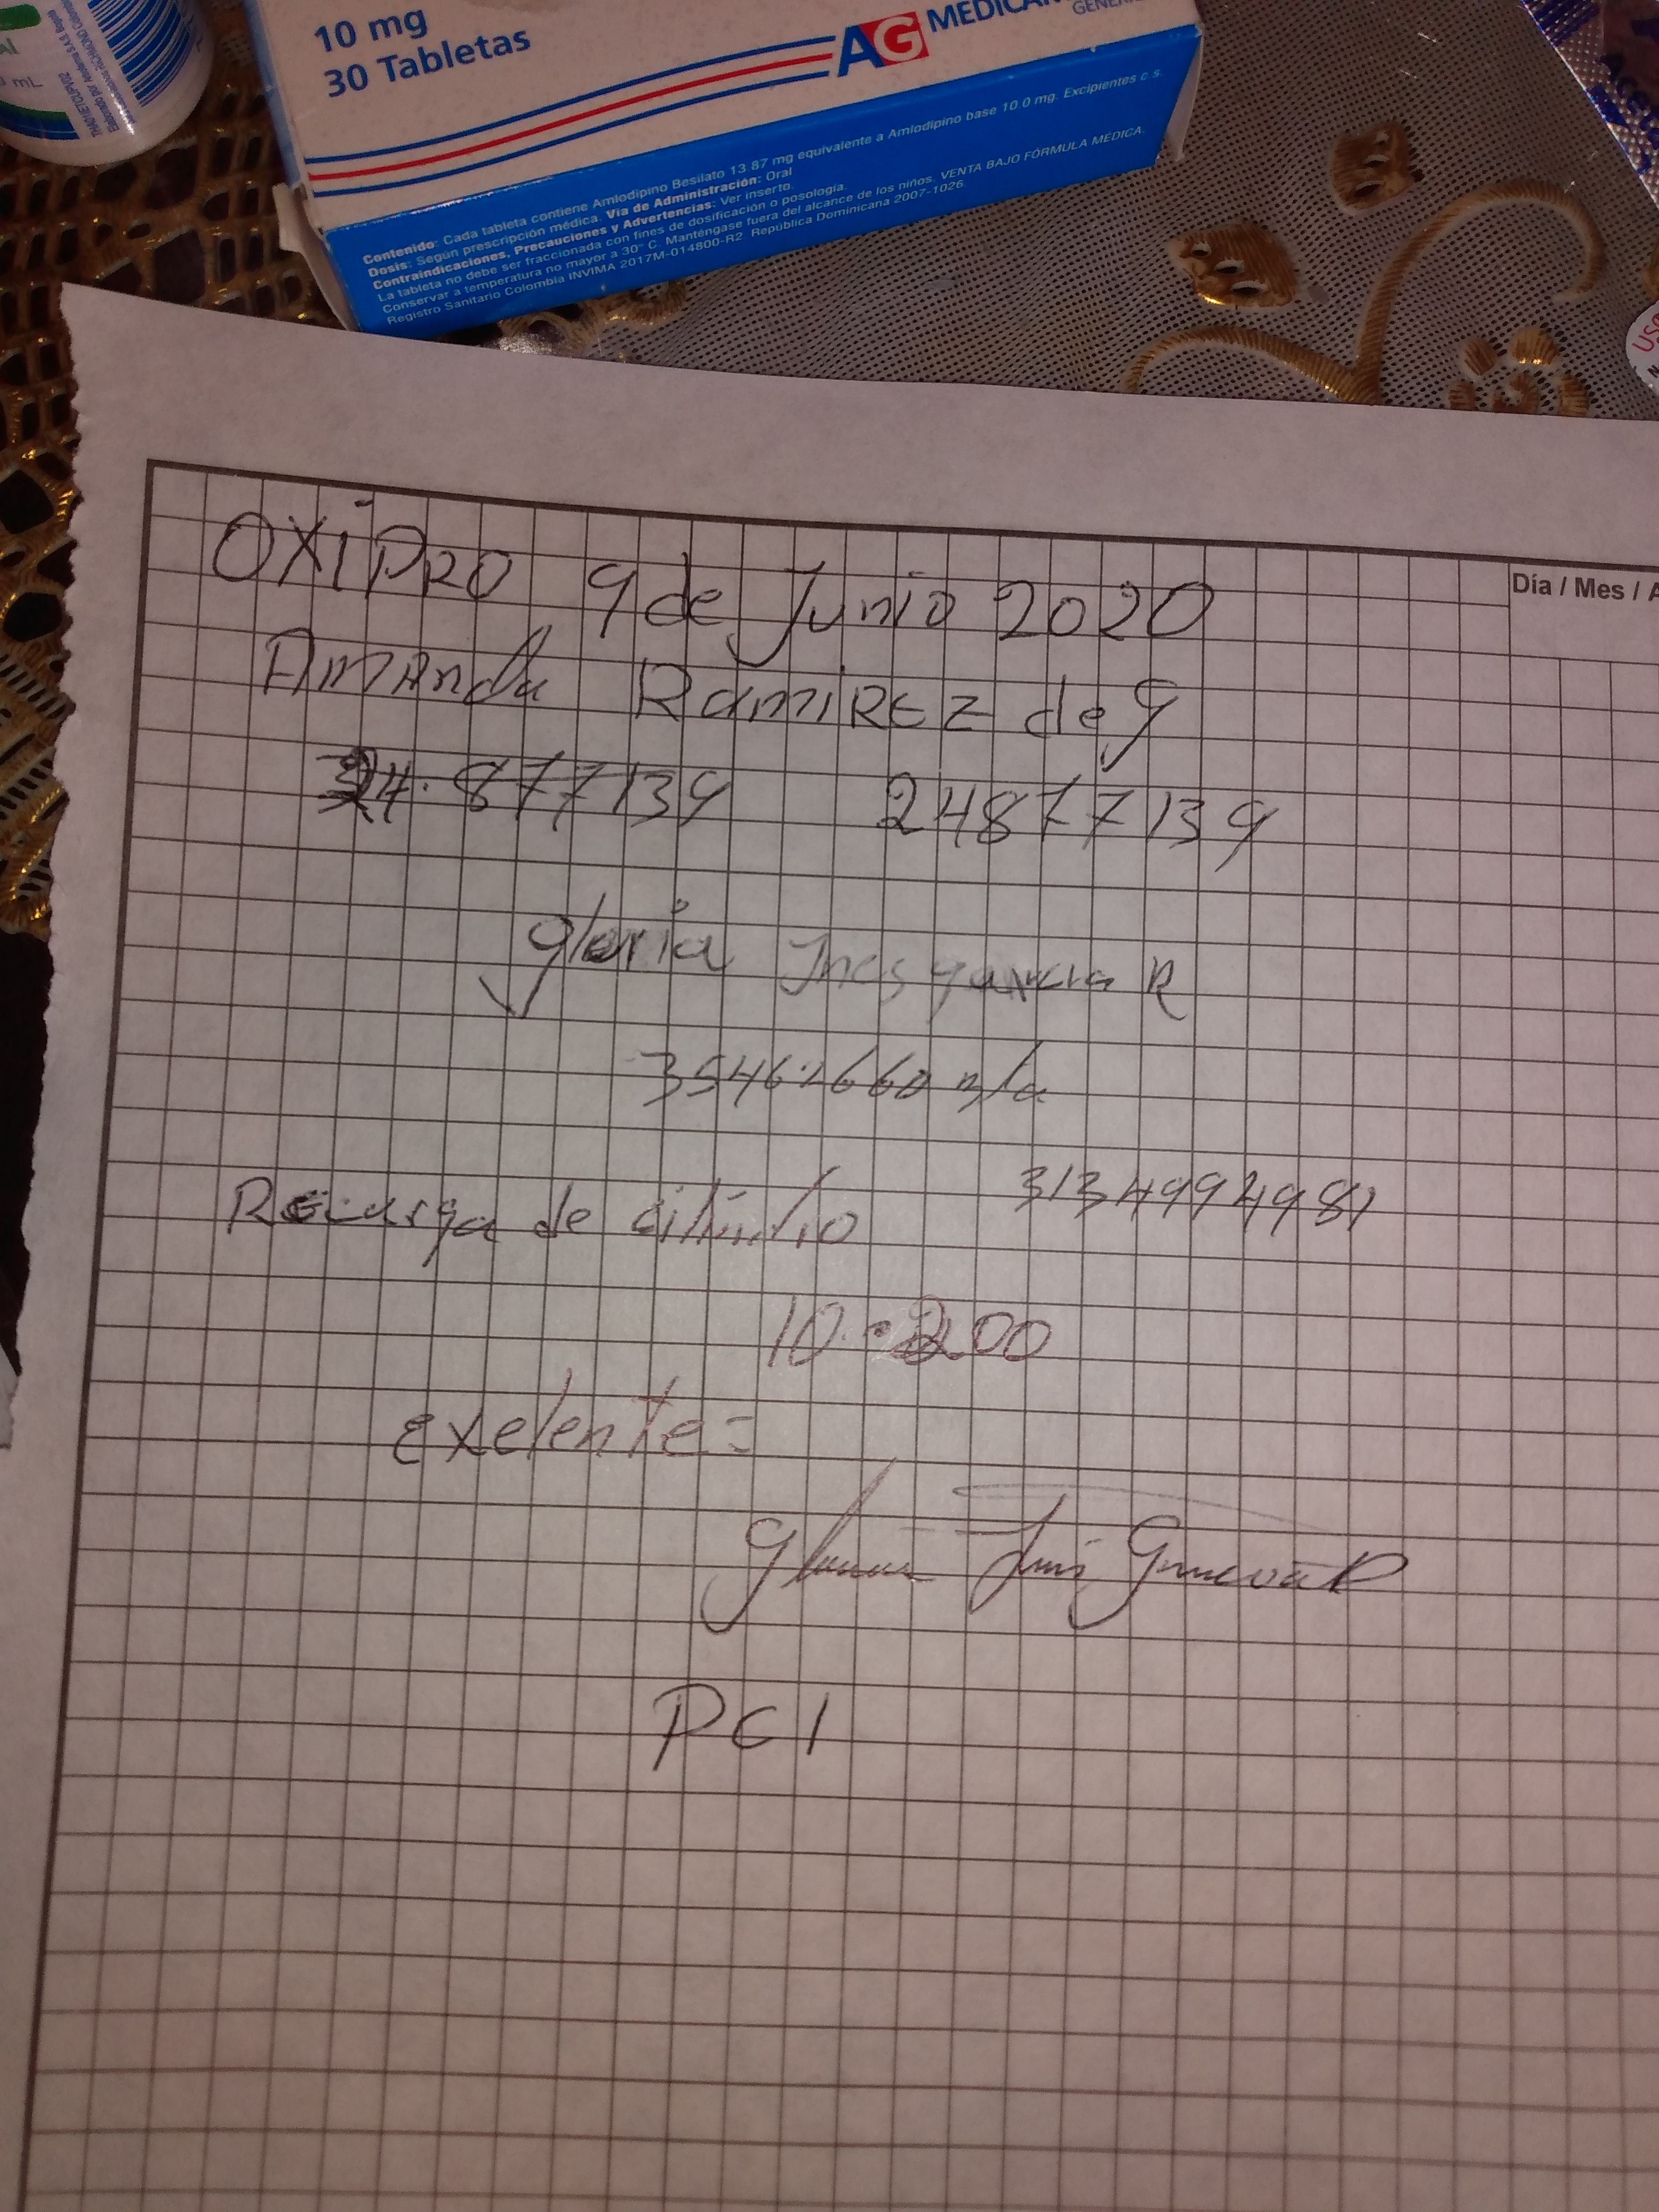 10 mg
30 Tabletas
AG MEDICAM
GENERI
mL
Contenido: Cada tableta contiene Amlodipino Besilato 13.87 mg equivalente a Amlodipino base 10.0 mg. Excipientes c.s.
Dosis: Según prescripción médica. Vía de Administración: Oral
Contraindicaciones, Precauciones y Advertencias: Ver inserto.
La tableta no debe ser fraccionada con fines de dosificación o posología.
Conservar a temperatura no mayor a 30° C. Manténgase fuera del alcance de los niños. VENTA BAJO FÓRMULA MÉDICA.
Registro Sanitario Colombia INVIMA 2017M-014800-R2 República Dominicana 2007-1026.
Día / Mes / A
OXIPRO 9 de Junio 2020
Amanda RamiREZ de g
24.877139 24877139
gloria Ines garcia R
35462660 n/a
Recarga de cilindro 3134994981
10.200
Exelente=
PCI